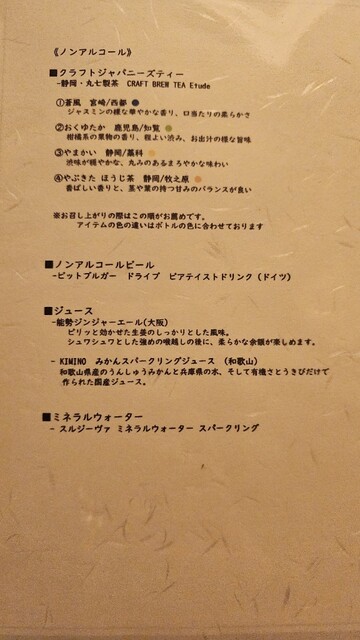 《ノンアルコール》
■クラフトジャパニーズティー
-静岡・丸七製茶 CRAFT BREW TEA Etude
①蒼風 宮崎/西都
ジャスミンの様な華やかな香り、口当たりの柔らかさ
②おくゆたか 鹿児島/知覧
柑橘系の果物の香り、程よい渋み、お出汁の様な旨味
③やまかい 静岡/藁科
渋味が穏やかな、丸みのあるまろやかな味わい
④やぶきた ほうじ茶 静岡/牧之原
香ばしい香りと、茎や葉の持つ甘みのバランスが良い
※お召し上がりの際はこの順がお薦めです。
アイテムの色の違いはボトルの色に合わせております
■ノンアルコールビール
-ビットブルガー ドライブ ピアテイストドリンク (ドイツ)
■ジュース
-能勢ジンジャーエール(大阪)
ピリッと効かせた生姜のしっかりとした風味。
シュワシュワとした強めの喉越しの後に、柔らかな余韻が楽しめます。
- KIMINO みかんスパークリングジュース (和歌山)
和歌山県産のうんしゅうみかんと兵庫県の水、そして有機さとうきびだけで
作られた国産ジュース。
■ミネラルウォーター
- スルジーヴァ ミネラルウォーター スパークリング